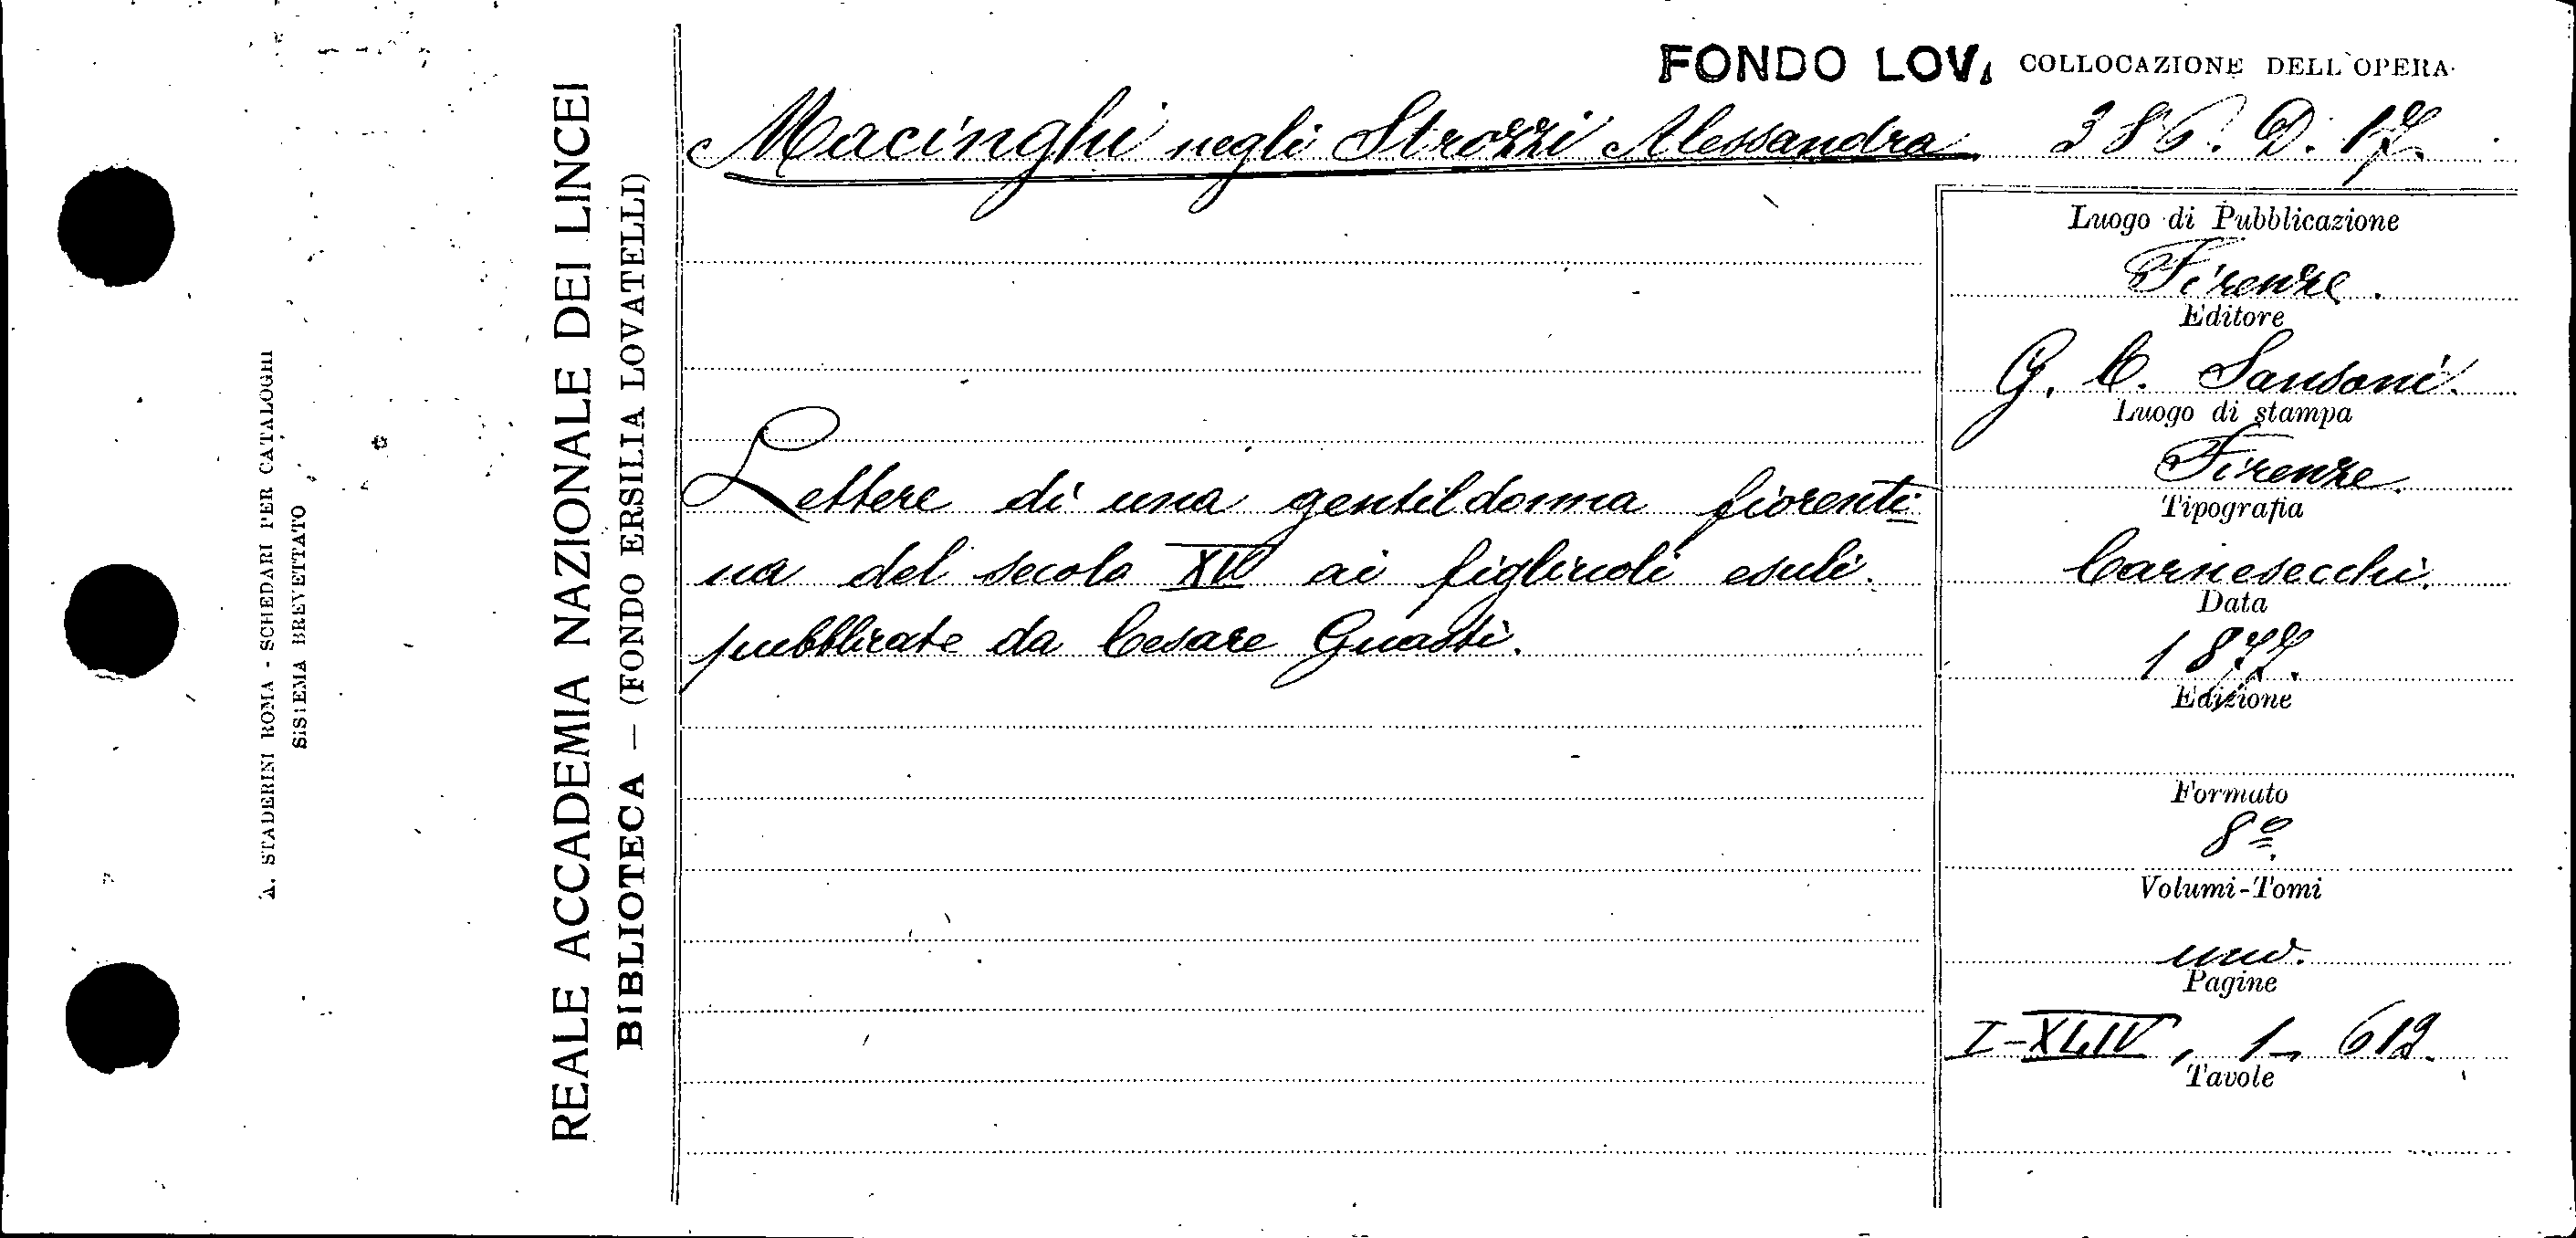 FONDO LOV. COLLOCAZIONE DELL'OPERA
Macinghi negli Strozzi Alessandra 386. D. 17.
Lettere di una gentildonna fiorenti-
na del secolo XV ai figliuoli esuli.
pubblicate da Cesare Guasti.
Luogo di Pubblicazione
Firenze.
Editore
G. C. Sansoni.
Luogo di stampa
Firenze.
Tipografia
Carnesecchi.
Data
1877.
Edizione
Formato
8º
Volumi-Tomi
uno.
Pagine
I-XLIV, 1- 612.
Tavole
REALE ACCADEMIA NAZIONALE DEI LINCEI
BIBLIOTECA — (FONDO ERSILIA LOVATELLI)
A. STADERINI ROMA - SCHEDARI PER CATALOGHI
SISTEMA BREVETTATO